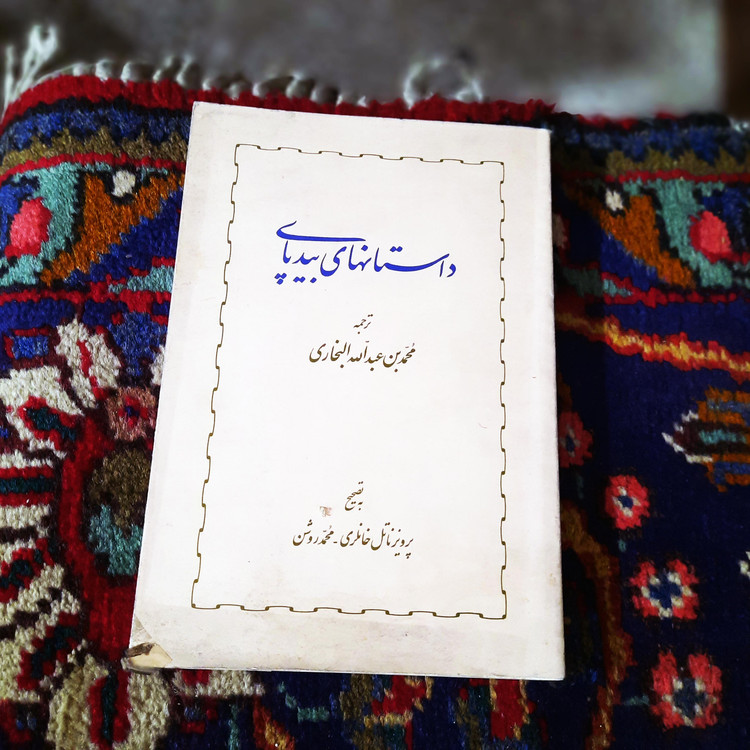 داستانهای بیدپای
ترجمه
محمّد بن عبدالله البخاری
به تصحیح
پرویز ناتل خانلری - محمّد روشن